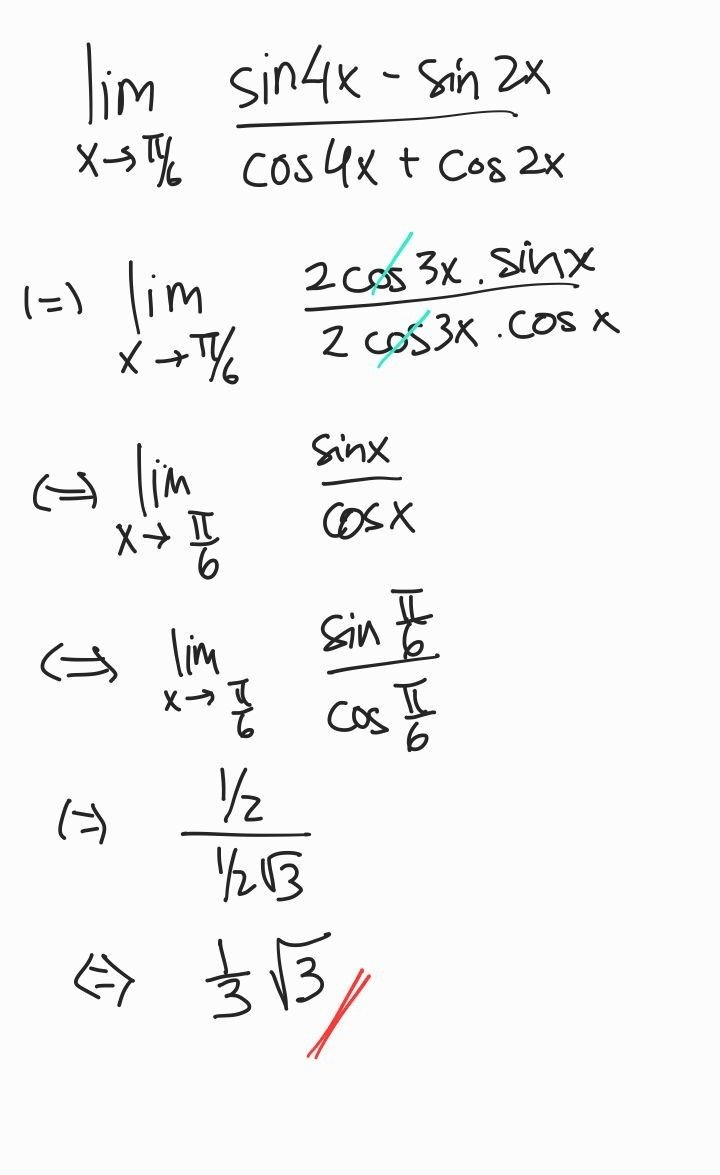 lim x→π/6 (sin4x - sin 2x)/(cos 4x + cos 2x)
(=) lim x→π/6 (2 cos 3x . sin x)/(2 cos 3x . cos x)
⇔ lim x→π/6 sinx/cosx
⇔ lim x→π/6 (sin π/6)/(cos π/6)
(=) (1/2)/(1/2√3)
⇔ 1/3 √3